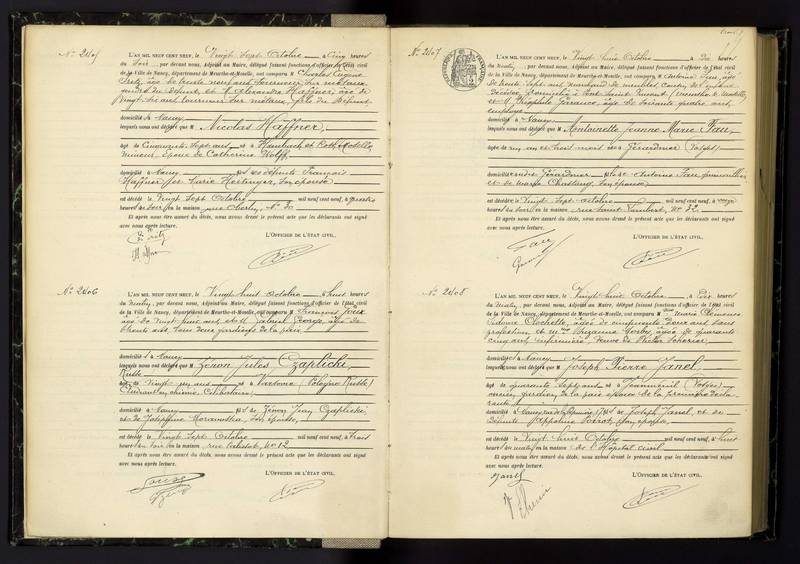 N° 2405
L'AN MIL NEUF CENT NEUF, le Vingt sept Octobre à Cinq heures
du Soir, par devant nous, Adjoint au Maire, délégué faisant fonctions d'officier de l'état civil
de la Ville de Nancy, département de Meurthe-et-Moselle, ont comparu M Charles Eugène
âgé de trente neuf ans, tourneur sur métaux
gendre du défunt, et Alexandre Haffner, âgé de
vingt six ans, tourneur sur métaux, fils du défunt
domicilié à Nancy
lesquels nous ont déclaré que M Nicolas Haffner,
âgé de Cinquante sept ans né à Hambach et Roth Moselle
mineur, époux de Catherine Wolff,
domicilié à Nancy fils des défunts François
Haffner et Marie Hertinger, son épouse
est décédé le Vingt sept Octobre mil neuf cent neuf, à quatre
heures du Soir en la maison rue N° 30
Et après nous être assuré du décès, nous avons dressé le présent acte que les déclarants ont signé
avec nous après lecture.
L'OFFICIER DE L'ÉTAT CIVIL,
N° 2406
L'AN MIL NEUF CENT NEUF, le Vingt huit Octobre à huit heures
du matin, par devant nous, Adjoint au Maire, délégué faisant fonctions d'officier de l'état civil
de la Ville de Nancy, département de Meurthe-et-Moselle, ont comparu M François
âgé de vingt neuf ans et Gabriel George, âgé de
trente ans, tous deux gardiens de la paix
domicilié à Nancy
lesquels nous ont déclaré que M Zénon Jules Czaplicki,
Russe
âgé de Vingt un ans né à Varsovie (Pologne Russe)
Étudiant en chimie, Célibataire,
domicilié à Nancy fils de Zénon Jean Czaplicki
et de Joséphine Morawska, son épouse,
est décédé le Vingt sept Octobre mil neuf cent neuf, à trois
heures du Soir en la maison rue N° 12
Et après nous être assuré du décès, nous avons dressé le présent acte que les déclarants ont signé
avec nous après lecture.
L'OFFICIER DE L'ÉTAT CIVIL,
N° 2407
L'AN MIL NEUF CENT NEUF, le Vingt huit Octobre à Dix heures
du Matin, par devant nous, Adjoint au Maire, délégué faisant fonctions d'officier de l'état civil
de la Ville de Nancy, département de Meurthe-et-Moselle, ont comparu M Antoine Fau, âgé
de trente sept ans, marchand de meubles,
décédée, domicilié à Pont Saint Vincent (Meurthe et Moselle)
et M Théophile âgé de soixante quatre ans,
employé
domicilié à Nancy
lesquels nous ont déclaré que M Antoinette Jeanne Marie Fau,
âgée de un an et huit mois née à Gérardmer (Vosges)
domiciliée à Gérardmer fille de Antoine Fau
et de Marie Chastang, son épouse
est décédée le Vingt sept octobre mil neuf cent neuf, à onze
heures du soir en la maison rue Saint Lambert, N° 32
Et après nous être assuré du décès, nous avons dressé le présent acte que les déclarants ont signé
avec nous après lecture.
L'OFFICIER DE L'ÉTAT CIVIL,
Fau
N° 2408
L'AN MIL NEUF CENT NEUF, le Vingt huit Octobre à Dix heures
du Matin, par devant nous, Adjoint au Maire, délégué faisant fonctions d'officier de l'état civil
de la Ville de Nancy, département de Meurthe-et-Moselle, ont comparu M Marie Clémence
Clochette, âgée de cinquante deux ans, sans
profession et Suzanne âgée de quarante
cinq ans, infirmière, veuve de
domicilié à Nancy
lesquels nous ont déclaré que M Joseph Pierre Janel
âgé de quarante sept ans né à Jeanménil (Vosges)
ancien gardien de la paix époux de la première déclarante
domicilié à Nancy fils de Joseph Janel, et de
défunte Appoline Poirot, son épouse,
est décédé le Vingt huit Octobre mil neuf cent neuf, à huit
heures du matin en la maison de l'Hôpital civil
Et après nous être assuré du décès, nous avons dressé le présent acte que les déclarants ont signé
avec nous après lecture.
L'OFFICIER DE L'ÉTAT CIVIL,